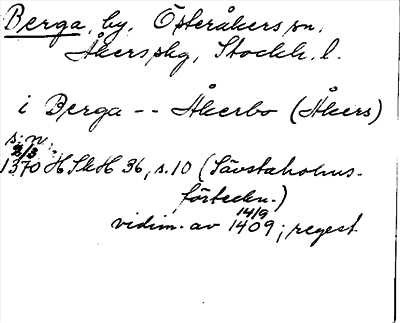 Berga, by, Österåkers sn,
Åkers skg, Stockh. l.
i Berga -- Åkerbo (Åkers)
s:n,
2/3
1370 HSkH 36, s.10 (Sävstaholms-
förteckn.)
14/9
vidim. av 1409; regest